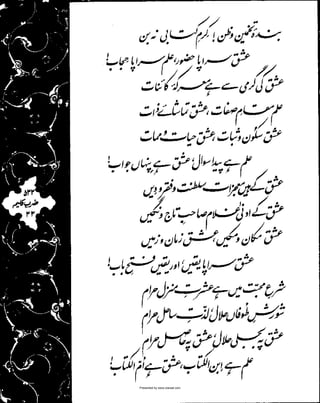 بندۂ تخمین و ظن! کرمِ کتابی نہ بن
عشق سراپا حضور، علم سراپا حجاب!
عشق کی گرمی سے ہے معرکۂ کائنات
علم مقامِ صفات، عشق تماشائے ذات
عشق سکون و ثبات، عشق حیات و ممات
علم ہے پیدا سوال، عشق ہے پنہاں جواب!
عشق کے ہیں معجزات سلطنت و فقر و دیں
عشق کے ادنیٰ غلام صاحبِ تاج و نگیں
عشق مکان و مکیں، عشق زمان و زمیں
عشق سراپا یقیں، اور یقیں فتحِ باب!
شرعِ محبت میں ہے عشرتِ منزل حرام
شورشِ طوفاں حلال، لذتِ ساحل حرام
عشق پہ بجلی حلال، عشق پہ حاصل حرام
علم ہے ابن الکتاب، عشق ہے امّ الکتاب!
۵۳۳
ضربِ کلیم
۳۳